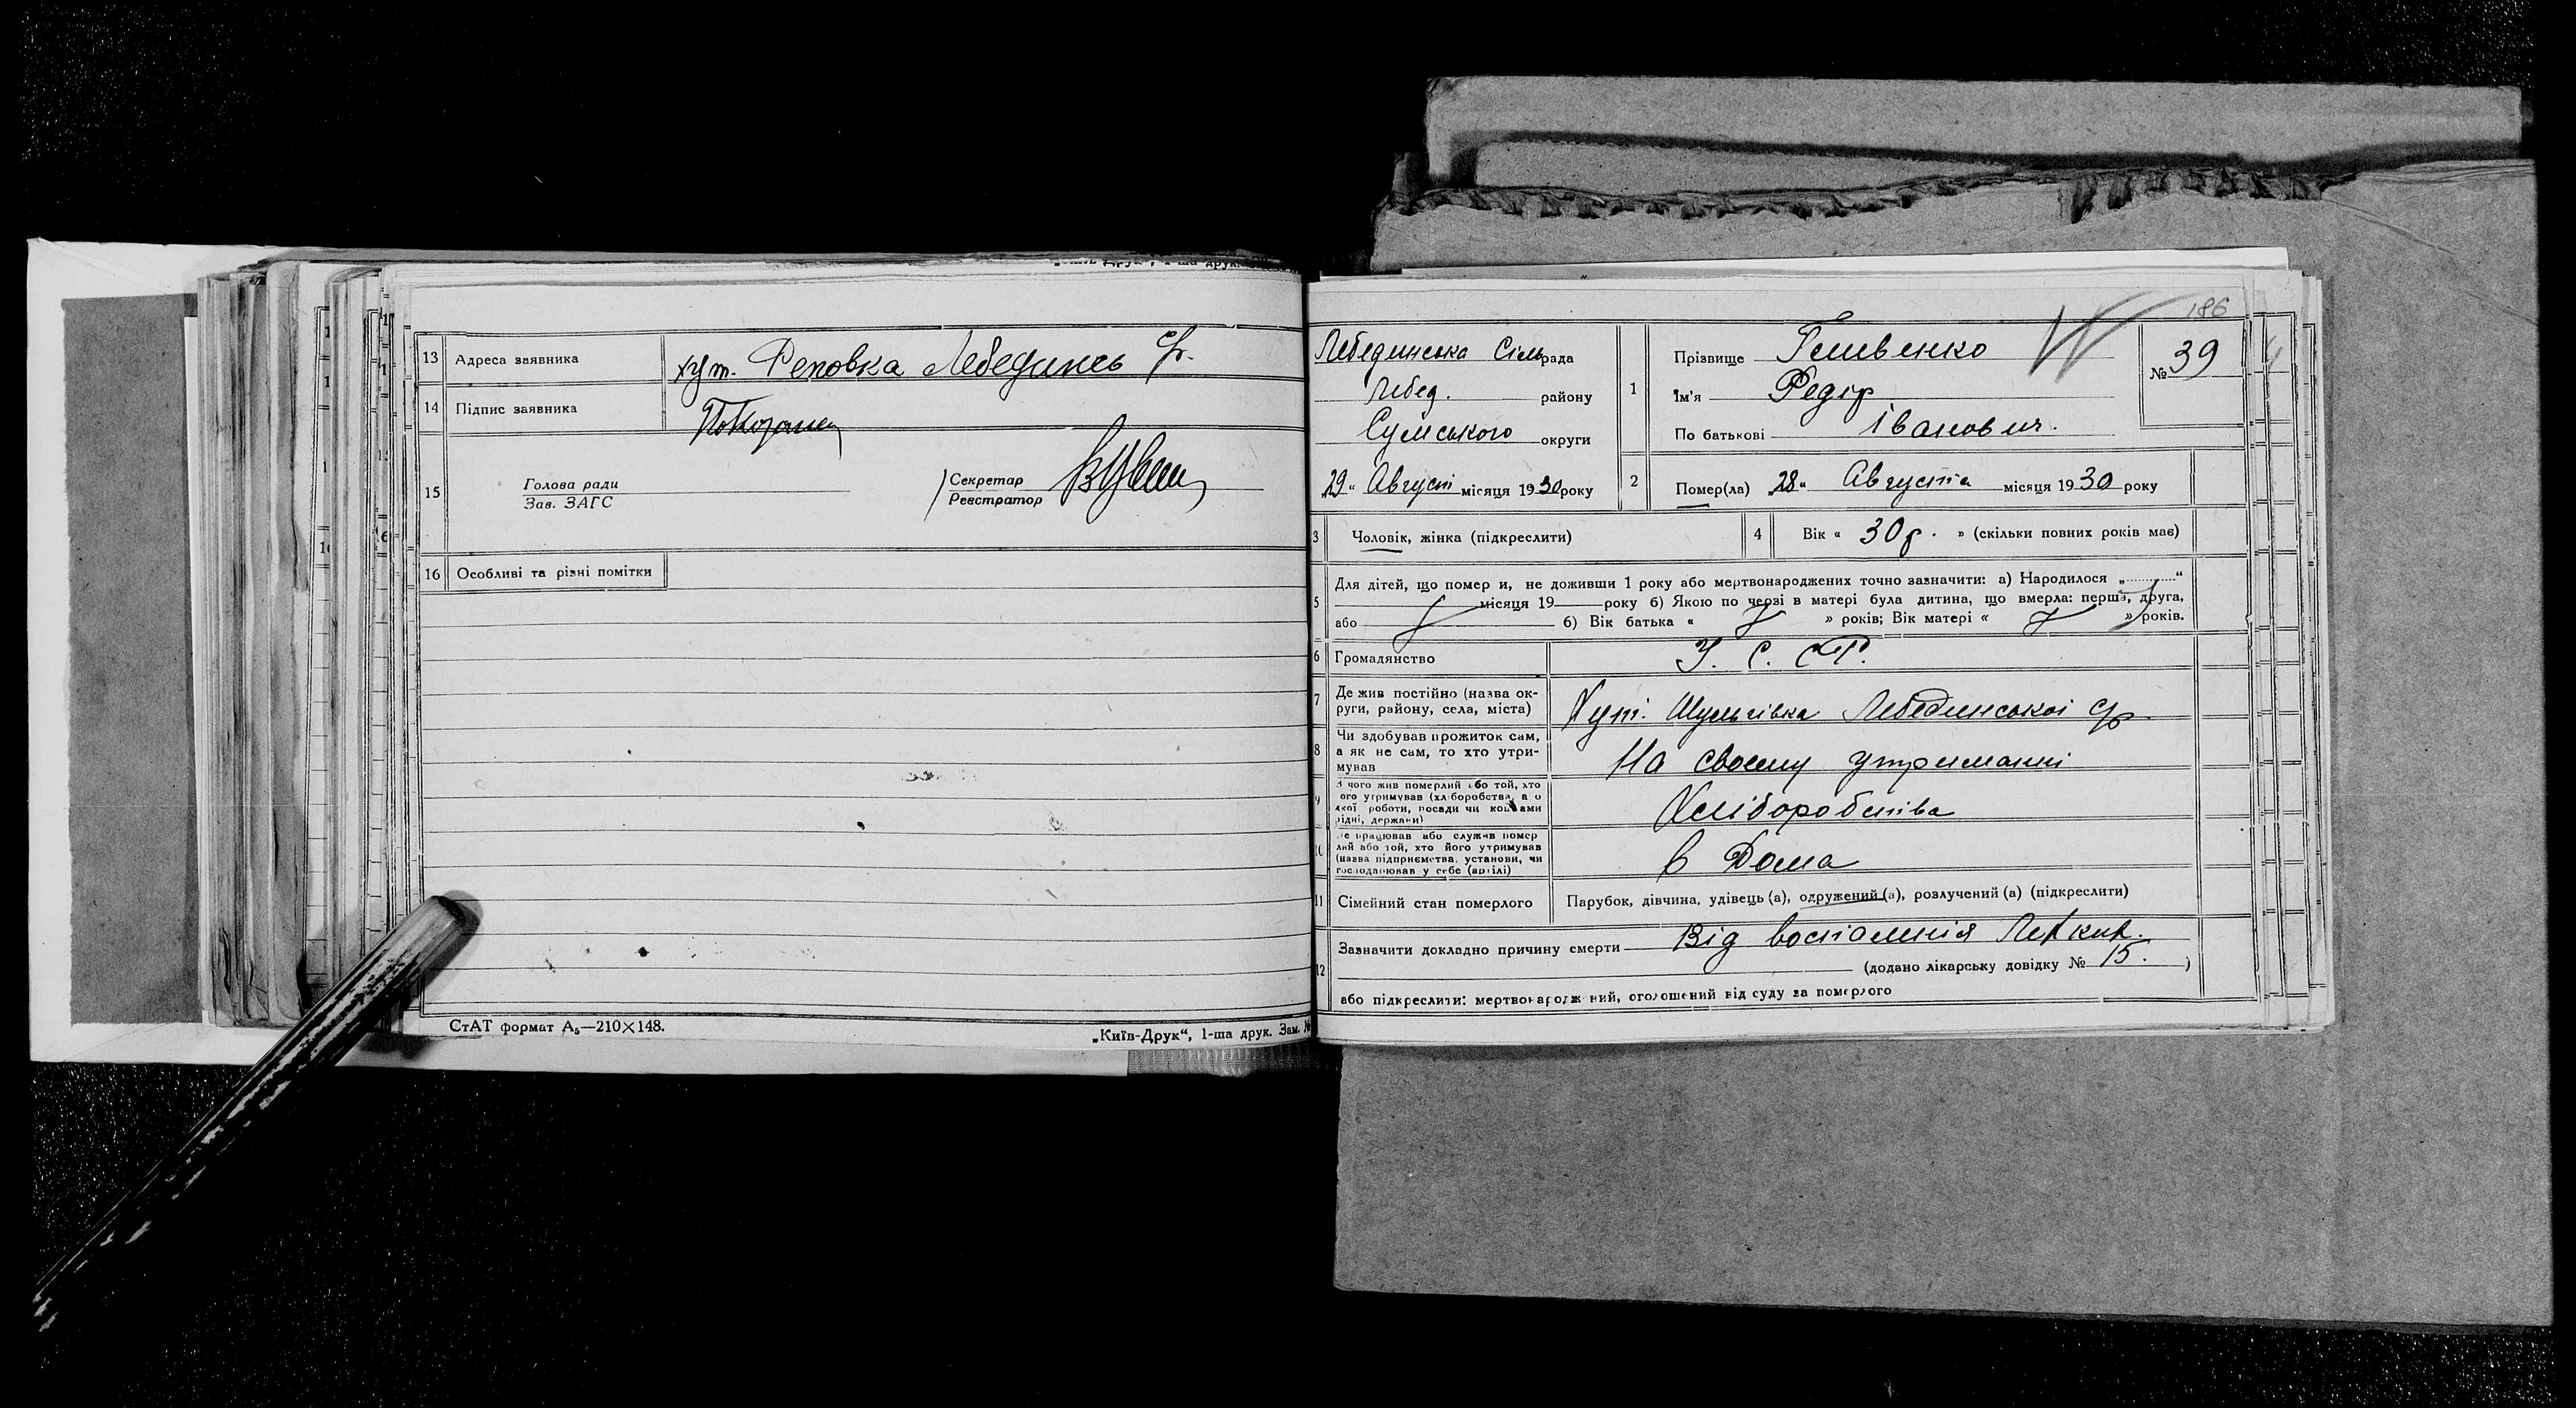 13 Адреса заявника хут. Реповка Лебединсь с/р.
14 Підпис заявника
15 Голова ради
Зав. ЗАГС
Секретар
Реєстратор
16 Особливі та різні помітки
СтАТ формат А5—210×148.
„Київ-Друк“, 1-ша друк. Зам. №
186
Лебединська Сільрада
Лебед. району
Сумського округи
„29“ Август місяця 1930 року
1 Прізвище
Ім'я Федір
По батькові Іванович.
№ 39
2 Помер(ла) „28“ Августа місяця 1930 року
3 Чоловік, жінка (підкреслити)
4 Вік « 30 р. » (скільки повних років має)
5 Для дітей, що помер и, не доживши 1 року або мертвонароджених точно зазначити: а) Народилося „ “
місяця 19 року б) Якою по черзі в матері була дитина, що вмерла: перша, друга,
або б) Вік батька « » років; Вік матері « » років.
6 Громадянство У. С. С. Р.
7 Де жив постійно (назва ок-
руги, району, села, міста) Хут. Шульгівка Лебединської с/р.
8 Чи здобував прожиток сам,
а як не сам, то хто утри-
мував На своєму утриманні
9 З чого жив померлий або той, хто
ого утримував (хліборобства, а о
якої роботи, посади чи коштами
рідні, держави) Хліборобства
10 Де працював або служив помер
лий або той, хто його утримував
(назва підприємства, установи, чи
господарював у себе (артілі) в Дома
11 Сімейний стан померлого Парубок, дівчина, удівець (а), одружений (а), розлучений (а) (підкреслити)
12 Зазначити докладно причину смерти Від воспаления Легких.
(додано лікарську довідку № 15. )
або підкреслити: мертвонароджений, оголошений від суду за померлого